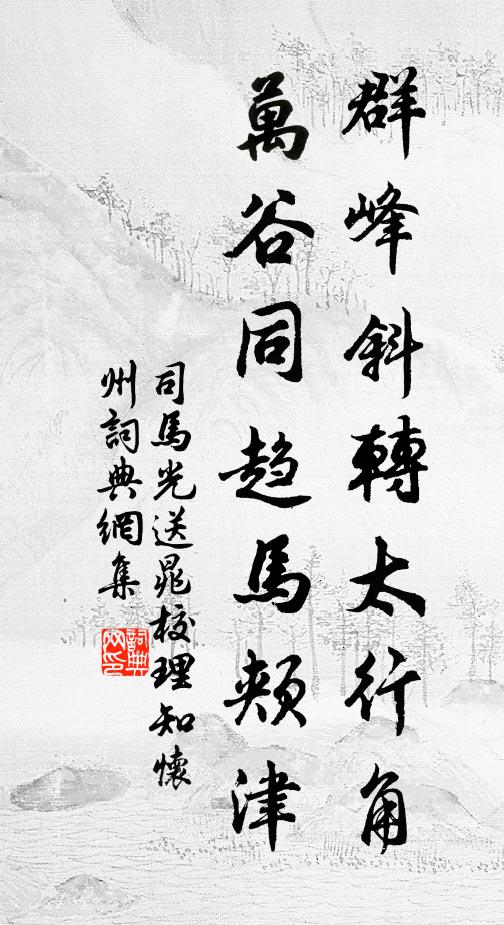 群峰斜轉太行角
萬谷同趋馬頰津
司馬光送晁校理知懷
州詞典網集
詞典
网印